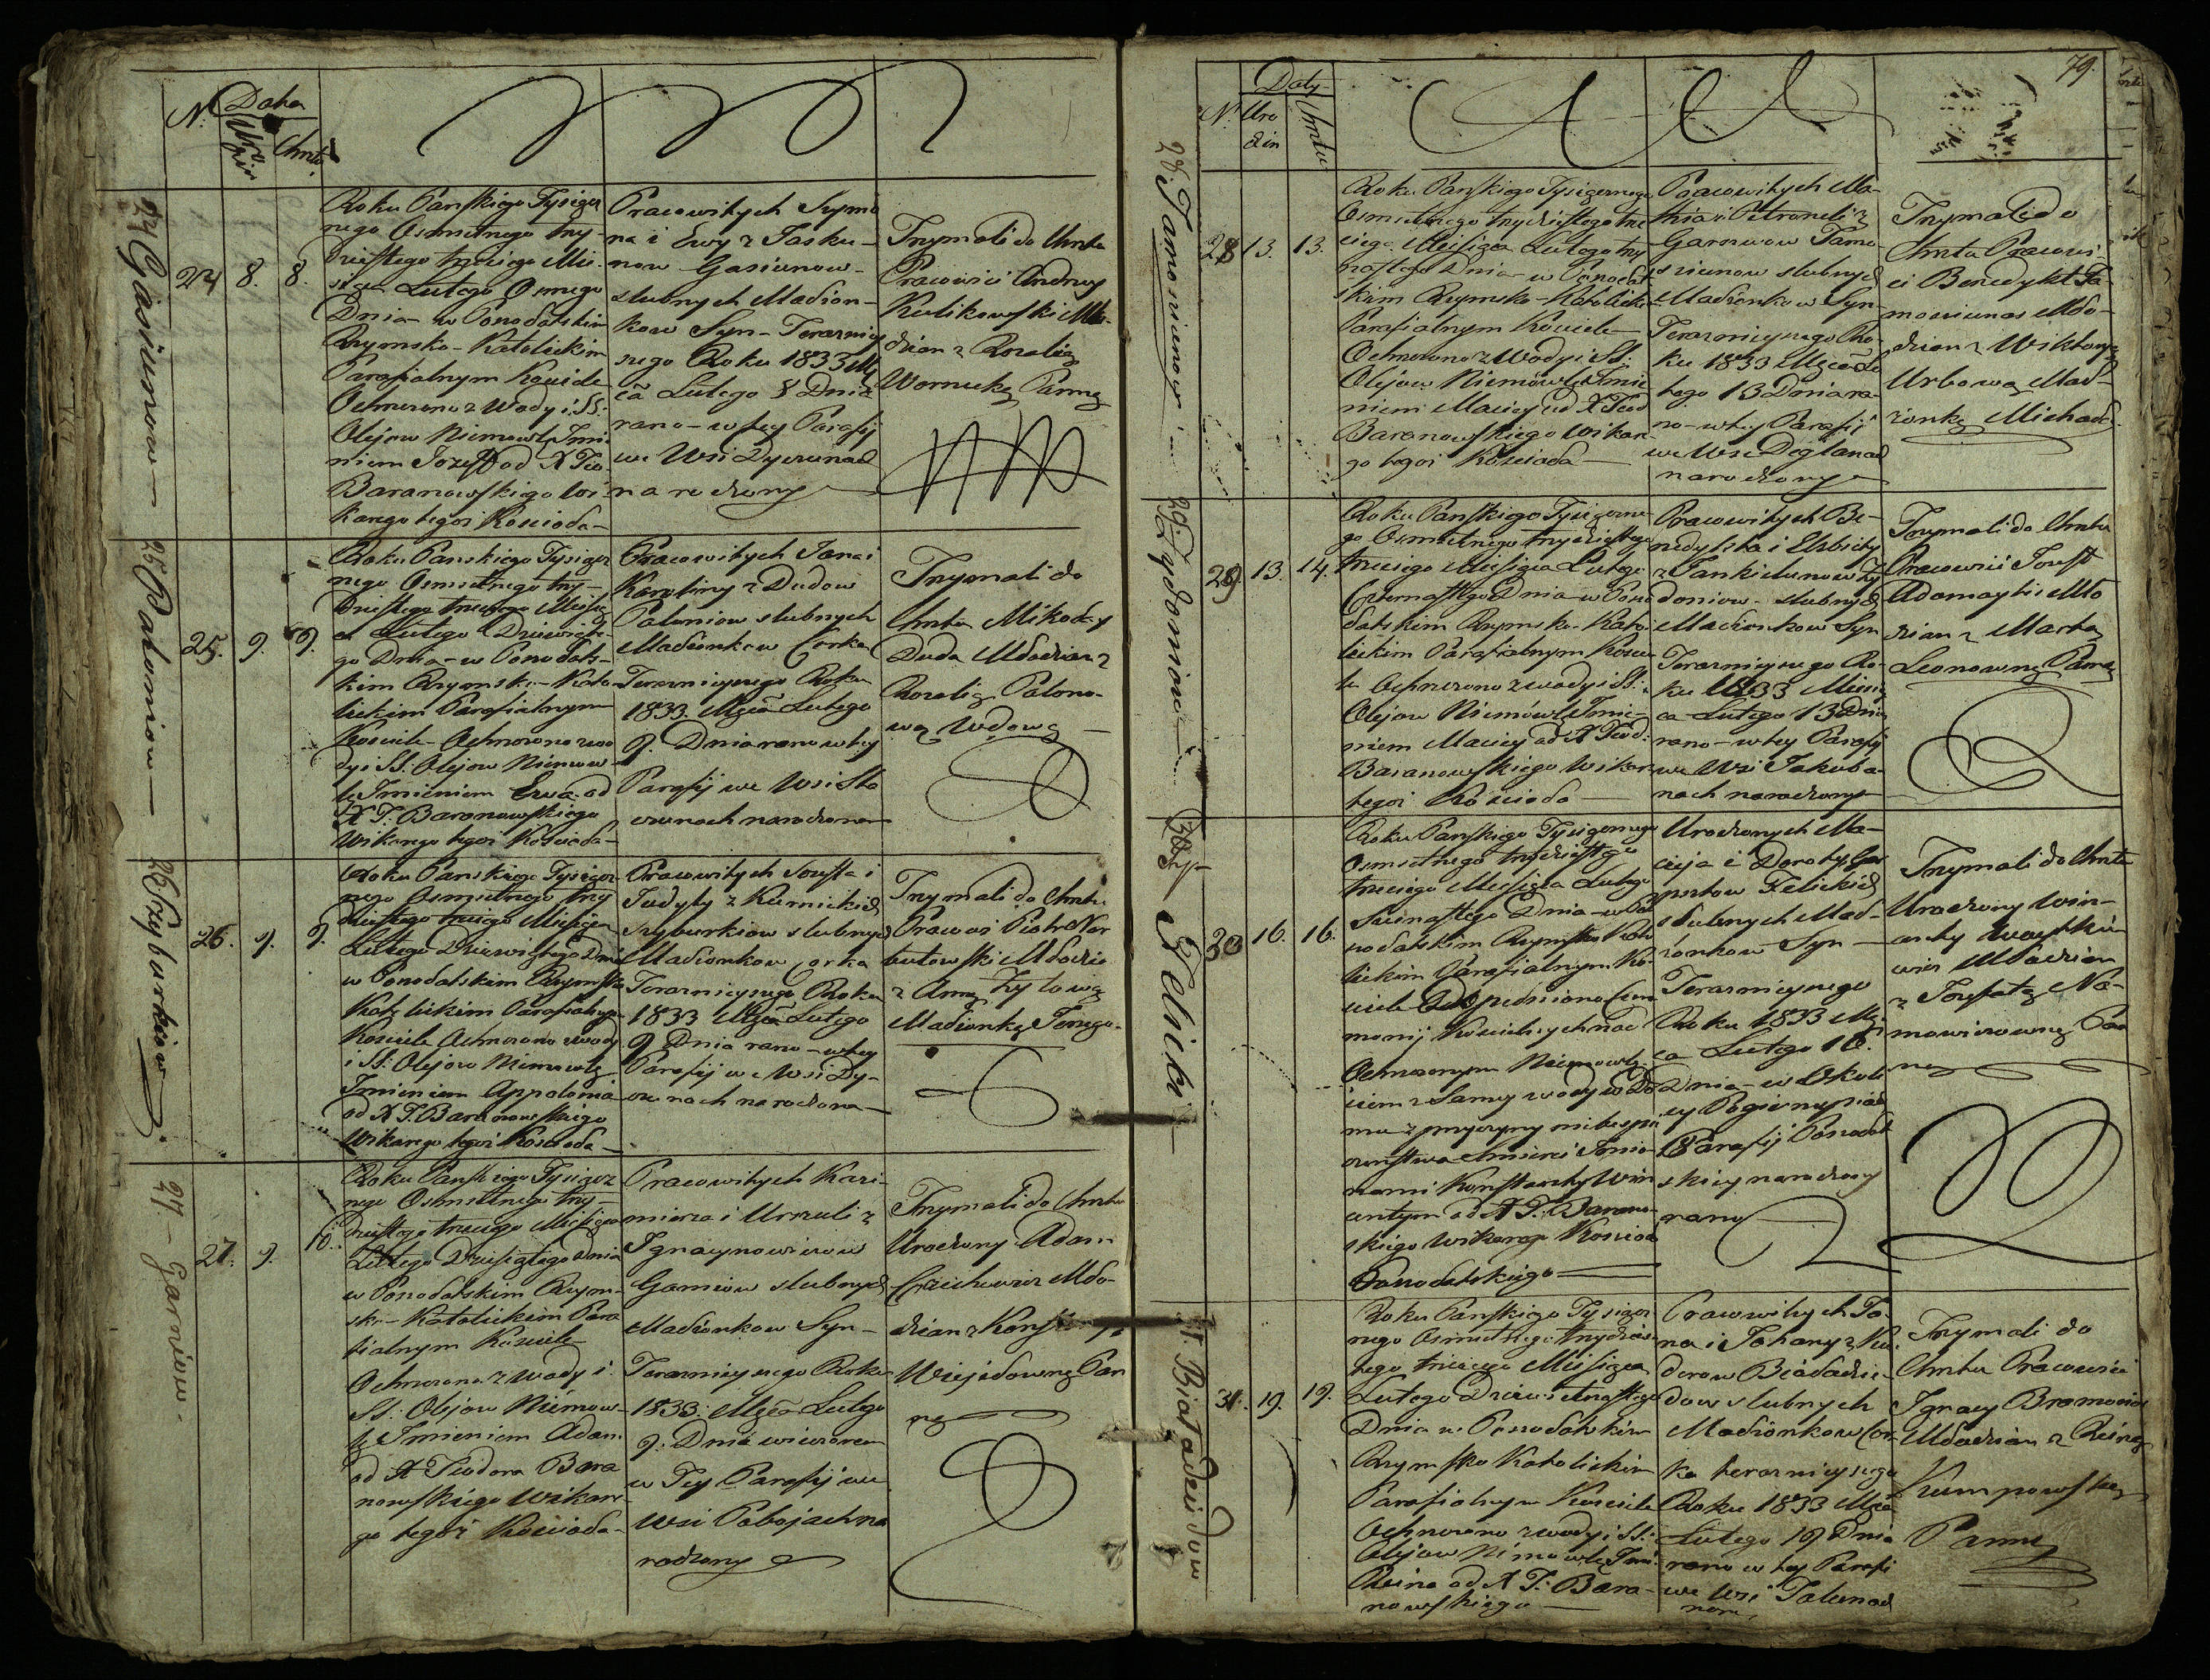 N. Data
Uro
dzin
Chrztu
24 Gasiunow
24 8. 8.
Roku Panskiego Tysiącz
nego Osmsetnego trzy-
dziestego trzeciego Mie-
siąca Lutego Osmego
Dnia w Ponodatskim
Rzymsko-Katolickim
Parafialnym Kosciele
Ochrzczono z Wody i SS:
Olejow Niemowle Imie
niem Jozeff od X Teo.
Baranowskiego Wi-
karego tegoż Kościoła
Pracowitych Szymo
na i Ewy z Jasku-
now Gasiunow
slubnych Małżon-
kow Syn Terazniey
szego Roku 1833 M
ca Lutego 8 Dnia
rano w tey Parafij
we Wsi
narodzony
Trzymali do Chrztu
Pracowici Andrzey
Kulikowski Mło-
dzian z Rozalią
Panną
25 Paloniow
25. 9. 9.
Roku Panskiego Tysiącz
nego Osmsetnego trzy-
dziestego trzeciego Miesią
ca Lutego Dziewiąte-
go Dnia w Ponodats-
kim Rzymsko-Kato
lickim Parafialnym
Kosciele Ochrzczono z wo
dy i SS: Olejow Niemow-
le Imieniem Ewa od
X T. Baranowskiego
Wikarego tegoż Kościoła
Pracowitych Jana i
Karoliny z Dudow
Paloniow slubnych
Małżonkow Corka
Teraznieyszego Roku
1833 Mzca Lutego
9. Dnia rano w tey
Parafij we Wsi
narodzona
Trzymali do
Chrztu Mikołay
Duda Młodzian z
Rozalią Palonio-
wą Wdową
26 Szyburkiow
26. 9. 9.
Roku Panskiego Tysiącz
nego Osmsetnego trzy
dziestego trzeciego Miesiąca
Lutego Dziewiątego Dnia
w Ponodatskim Rzymsko
Katolickim Parafialnym
Kosciele Ochrzczono z wody
i SS: Olejow Niemowle
Imieniem Appolonia
od X T. Baranowskiego
Wikarego tegoż Kościoła
Pracowitych Jozefa i
Judyty z
Szyburkiow slubnych
Małżonkow Corka
Terazniey szego Roku
1833 Mzca Lutego
9 Dnia rano w tey
Parafij we Wsi
narodzona
Trzymali do Chrztu
Piotr Nar
butowski Młodzia
z Anną
Małżonką
27 Garniow
27. 9. 10.
Roku Panskiego Tysiącz
nego Osmsetnego trzy-
dziestego trzeciego Miesiąca
Lutego Dziesiątego Dnia
w Ponodatskim Rzym-
sko-Katolickim Para
fialnym Kosciele
Ochrzczono z wody i
SS: Olejow Niemow-
le Imieniem Adam
od X Teodora Bara
nowskiego Wikare-
go tegoż Kościoła
Pracowitych Kazi-
mierza i Urszuli z
Ignacynowiczow
Garniow slubnych
Małżonkow Syn
Terazniey szego Roku
1833: Mzca Lutego
9. Dnia wieczorem
w Tey Parafij we
Wsi Pobojach na
rodzony
Trzymali do Chrztu
Urodzony Adam
Młodzian z
Pan
ną
79.
N. Daty
Uro
dzin
Chrztu
28. Jamoniunow
28 13. 13.
Roku Panskiego Tysiącznego
Osmsetnego trzydziestego trze
ciego Miesiąca Lutego trzy
nastego Dnia w Ponodat
skim Rzymsko-Katolickim
Parafialnym Kosciele
Ochrzczono z Wody i SS:
Olejow Niemowle Imie
niem Maciey od X Teod
Baranowskiego Wikare-
go tegoż Kościoła
Pracowitych Ma-
thia i Petroneli z
Małżonkow Syn
Terazniey szego Ro-
ku 1833 Mzca Lu
tego 13 Dnia ra-
no w tey Parafij
we Wsi
narodzony
Trzymali do
Chrztu Pracowi-
ci Benedykt
Mło-
dzian z Wiktoryą
Urbową Mał-
żonką Michała
29. Żydoniow
29. 13. 14.
Roku Panskiego Tysiączne
go Osmsetnego trzydziestego
trzeciego Miesiąca Lutego
Czternastego Dnia w Pono
datskim Rzymsko-Kato
lickim Parafialnym Koscie
le Ochrzczono z wody i SS:
Olejow Niemowle Imie-
niem Maciey od X Teod:
Baranowskiego Wikare
tegoż Kościoła
Pracowitych Be-
nedykta i Elzbiety
z Jankielunow Ży
doniow slubnych
Małżonkow Syn
Terazniey szego Ro-
ku 1833 Miesią
ca Lutego 13 Dnia
rano w tey Parafij
we Wsi Jakuba-
nach narodzony
Trzymali do Chrztu
Pracowici Joseff
Adamaytis Mło
dzian z Martą
Leonowną Panną
30 Zelicki
30 16. 16.
Roku Panskiego Tysiącznego
Osmsetnego trzydziestego
trzeciego Miesiąca Lutego
Szesnastego Dnia w Po
nodatskim Rzymsko Kato
lickim Parafialnym Ko-
sciele Dopełniono Cere
monij Koscielnych nad
Ochrzczonym Niemowlę
ciem z Samey wody w Do
mu z przyczyny niebespie
czenstwa smierci Imio
nami Konstanty Win
centym od X T: Barano-
skiego Wikarego Koscioła
Ponodatskiego
Urodzonych Ma-
cieja i Doroty
Zelickich
slubnych Mał-
żonkow Syn
Terazniey szego
Roku 1833 Mzca
Lutego 16.
Dnia w Okoli
cy
Parafij Ponodat
skiey narodzony
rano
Trzymali do Chrztu
Urodzony Win-
centy Woytkie-
wicz Młodzian
z Jozefatą
Pan
ną
31. Białadzidow
31. 19. 19.
Roku Panskiego Tysiącz
nego Osmsetnego trzydzies-
tego trzeciego Miesiąca
Lutego Dziewietnastego
Dnia w Ponodatskim
Rzymsko Katolickim
Parafialnym Kosciele
Ochrzczono z wody i SS:
Olejow Niemowle Imi:
Reina od X T: Bara-
nowskiego
Pracowitych Jo-
na i Johany z
slubnych
Małżonkow Cor-
ka terazniey szego
Roku 1833 Mzca
Lutego 19 Dnia
rano w tey Parafi
we Wsi
Trzymali do
Chrztu Pracowici
Ignacy
Młodzian z Reiną
Kumpowską
Panną